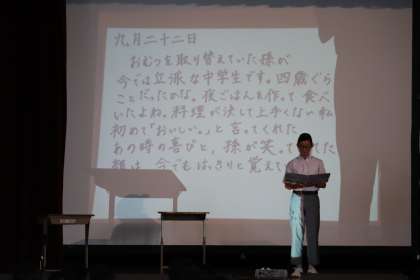 九月二十二日
おむつを取り替えていた孫が
今では立派な中学生です。四歳ぐら
ことだったかな。夜ごはんを作って食べ
いたよね。料理が決して上手くない私
初めて「おいしい。」と言ってくれた
あの時の喜びと、孫が笑って
顔は、今でもはっきりと覚えて